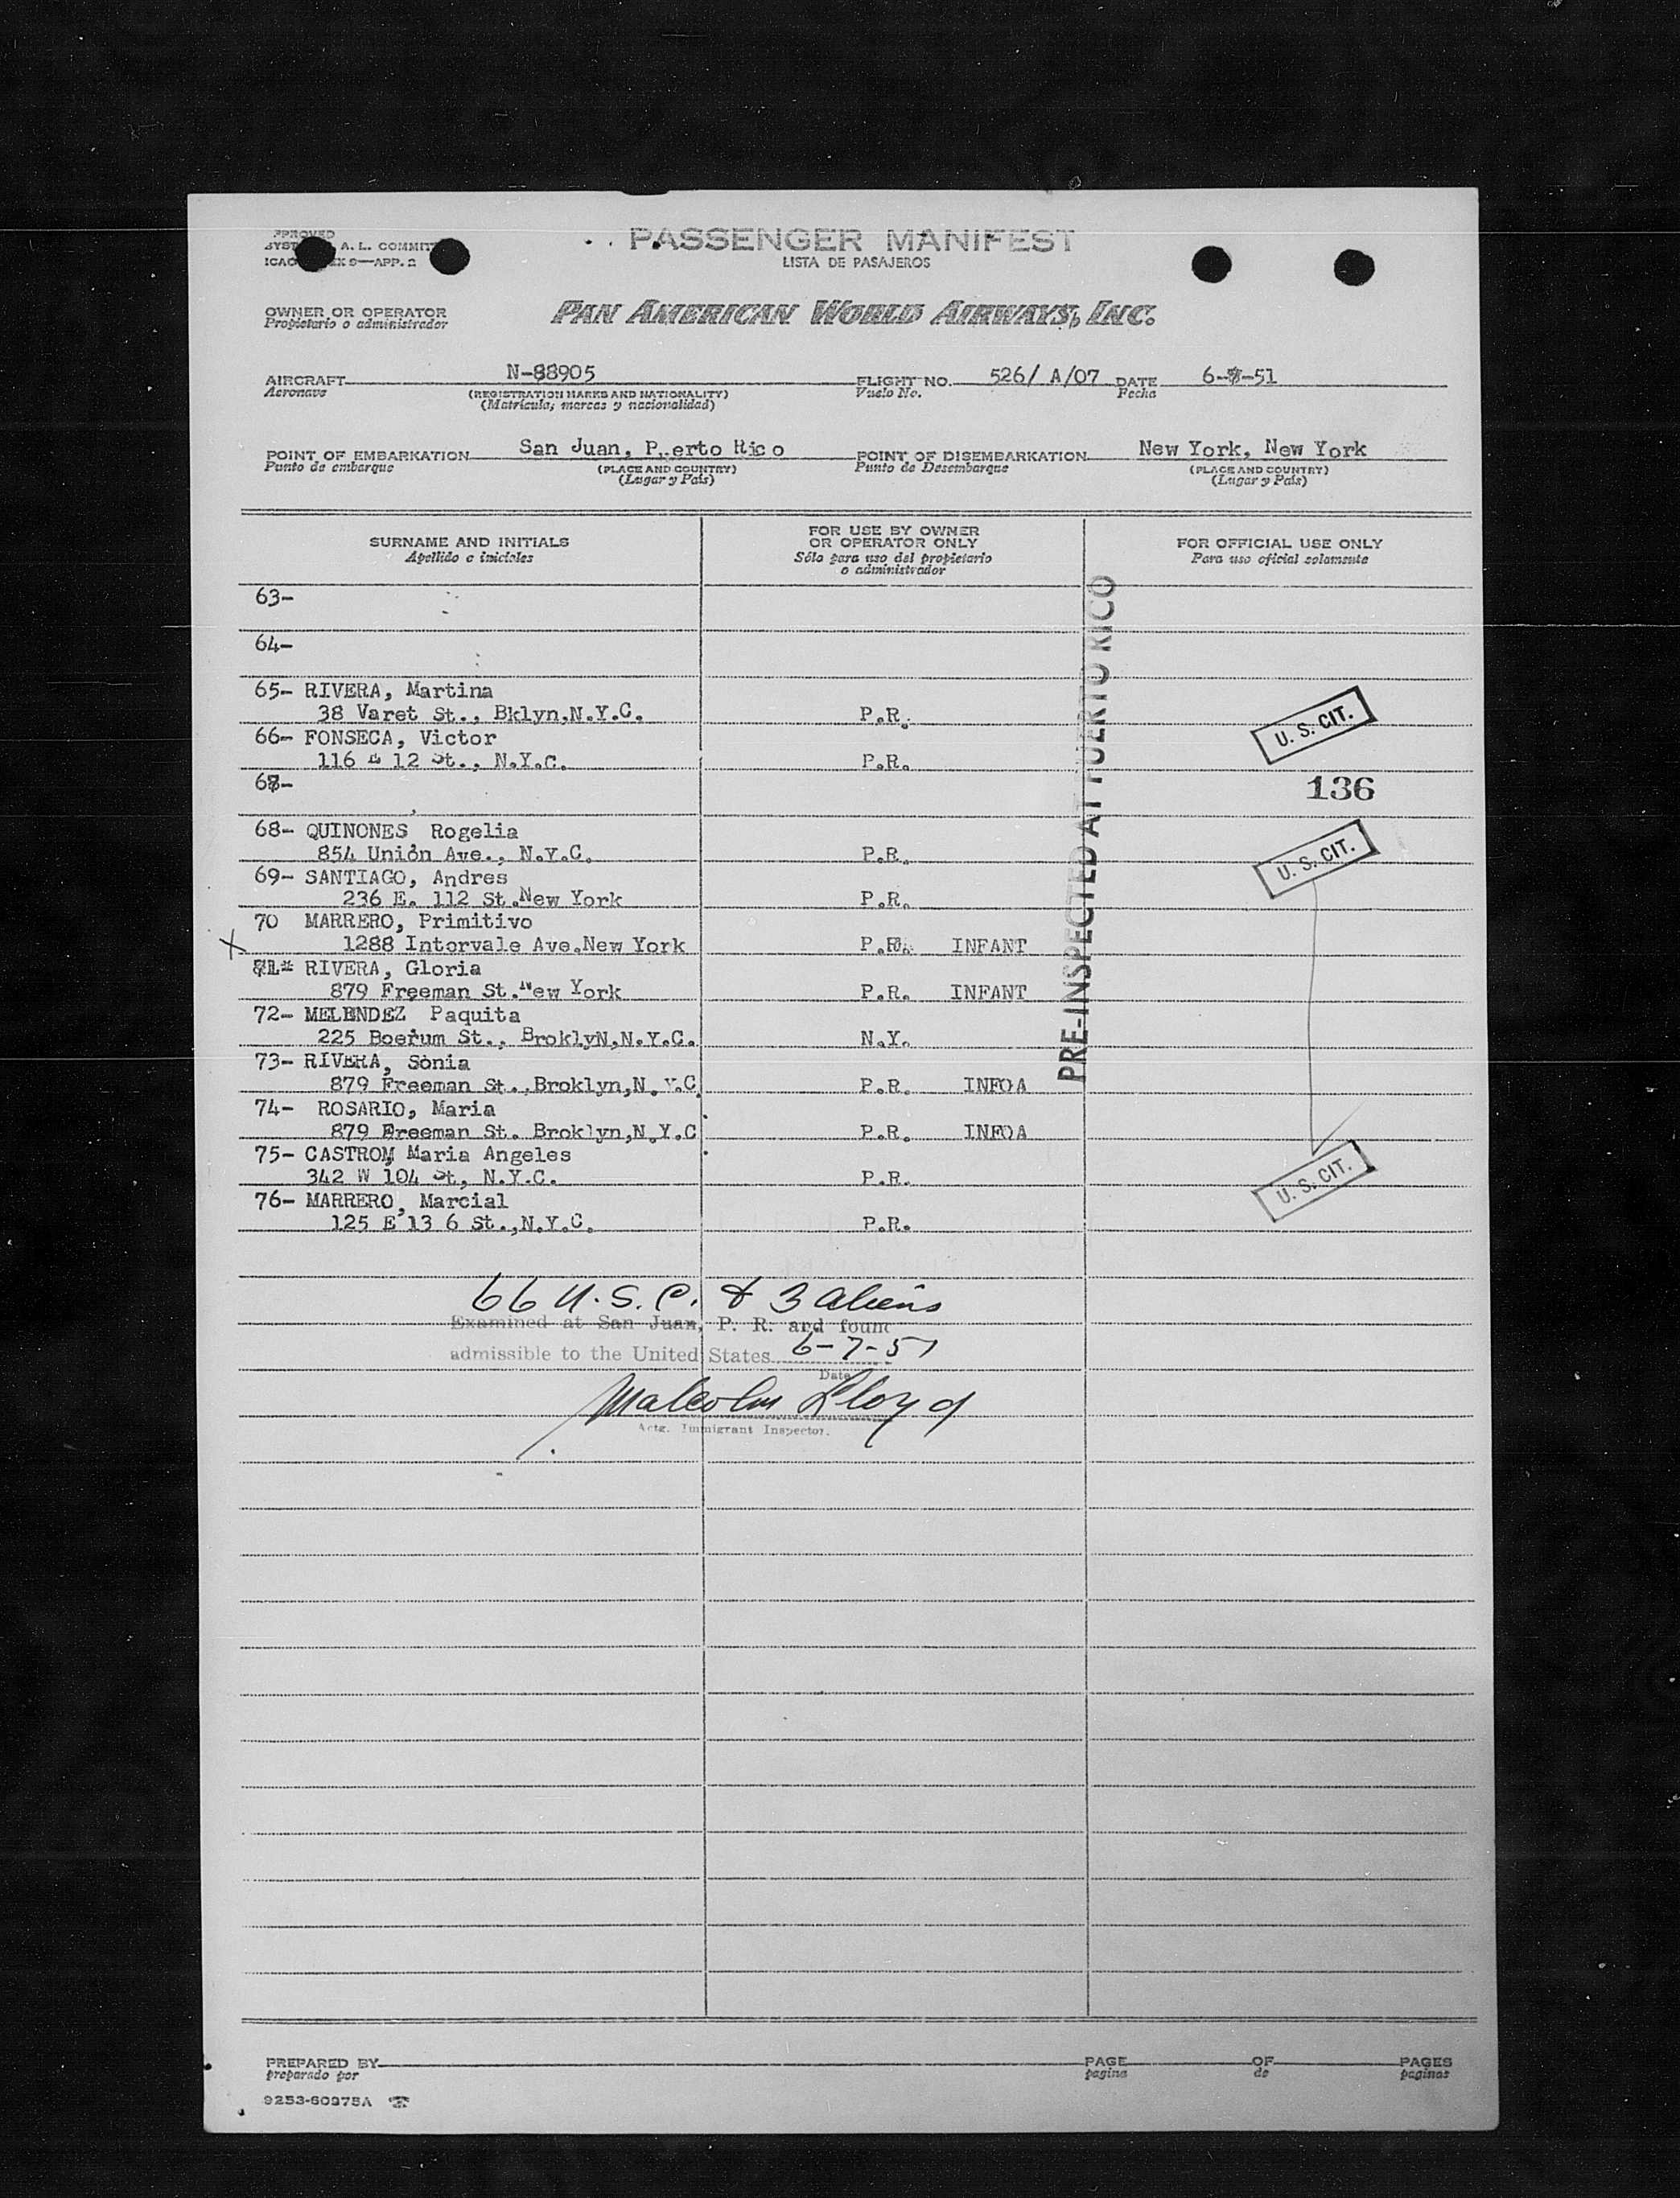 PPROVED
SYST A. L. COMMIT
ICAO EX 9—APP. 2
PASSENGER MANIFEST
LISTA DE PASAJEROS
OWNER OR OPERATOR
Propietario o administrador
PAN AMERICAN WORLD AIRWAYS, INC.
AIRCRAFT N-88905 FLIGHT NO. 526/ A/07 DATE 6-7-51
Aeronave (REGISTRATION MARKS AND NATIONALITY) Vuelo No. Fecha
(Matrícula, marcas y nacionalidad)
POINT OF EMBARKATION San Juan, P.erto Rico POINT OF DISEMBARKATION New York, New York
Punto de embarque (PLACE AND COUNTRY) Punto de Desembarque (PLACE AND COUNTRY)
(Lugar y País) (Lugar y País)
SURNAME AND INITIALS
Apellido e iniciales
FOR USE BY OWNER
OR OPERATOR ONLY
Sólo para uso del propietario
o administrador
FOR OFFICIAL USE ONLY
Para uso oficial solamente
PRE-INSPECTED AT PUERTO RICO
63-
64-
65- RIVERA, Martina
38 Varet St., Bklyn,N.Y.C. P.R. U. S. CIT.
66- FONSECA, Victor
116 E 12 St., N.Y.C. P.R.
67- 136
68- QUINONES Rogelia
854 Unión Ave., N.Y.C. P.R. U. S. CIT.
69- SANTIAGO, Andres
236 E. 112 St.New York P.R.
70 MARRERO, Primitivo
X 1288 Intervale Ave.New York P.R. INFANT
71- RIVERA, Gloria
879 Freeman St.New York P.R. INFANT
72- MELENDEZ Paquita
225 Boerum St., BroklyN,N.Y.C. N.Y.
73- RIVERA, Sonia
879 Freeman St.,Broklyn,N.Y.C P.R. INFOA
74- ROSARIO, Maria
879 Freeman St. Broklyn,N.Y.C P.R. INFOA
75- CASTROM Maria Angeles
342 W 104 St, N.Y.C. P.R. U. S. CIT.
76- MARRERO, Marcial
125 E 13 6 St.,N.Y.C. P.R.
66 U.S.C. & 3 aliens
Examined at San Juan, P. R. and foun
admissible to the United States 6-7-51
Date
Malcolm Lloyd
Actg. Immigrant Inspector.
PREPARED BY PAGE OF PAGES
preparado por pagina de paginas
9253-60975A